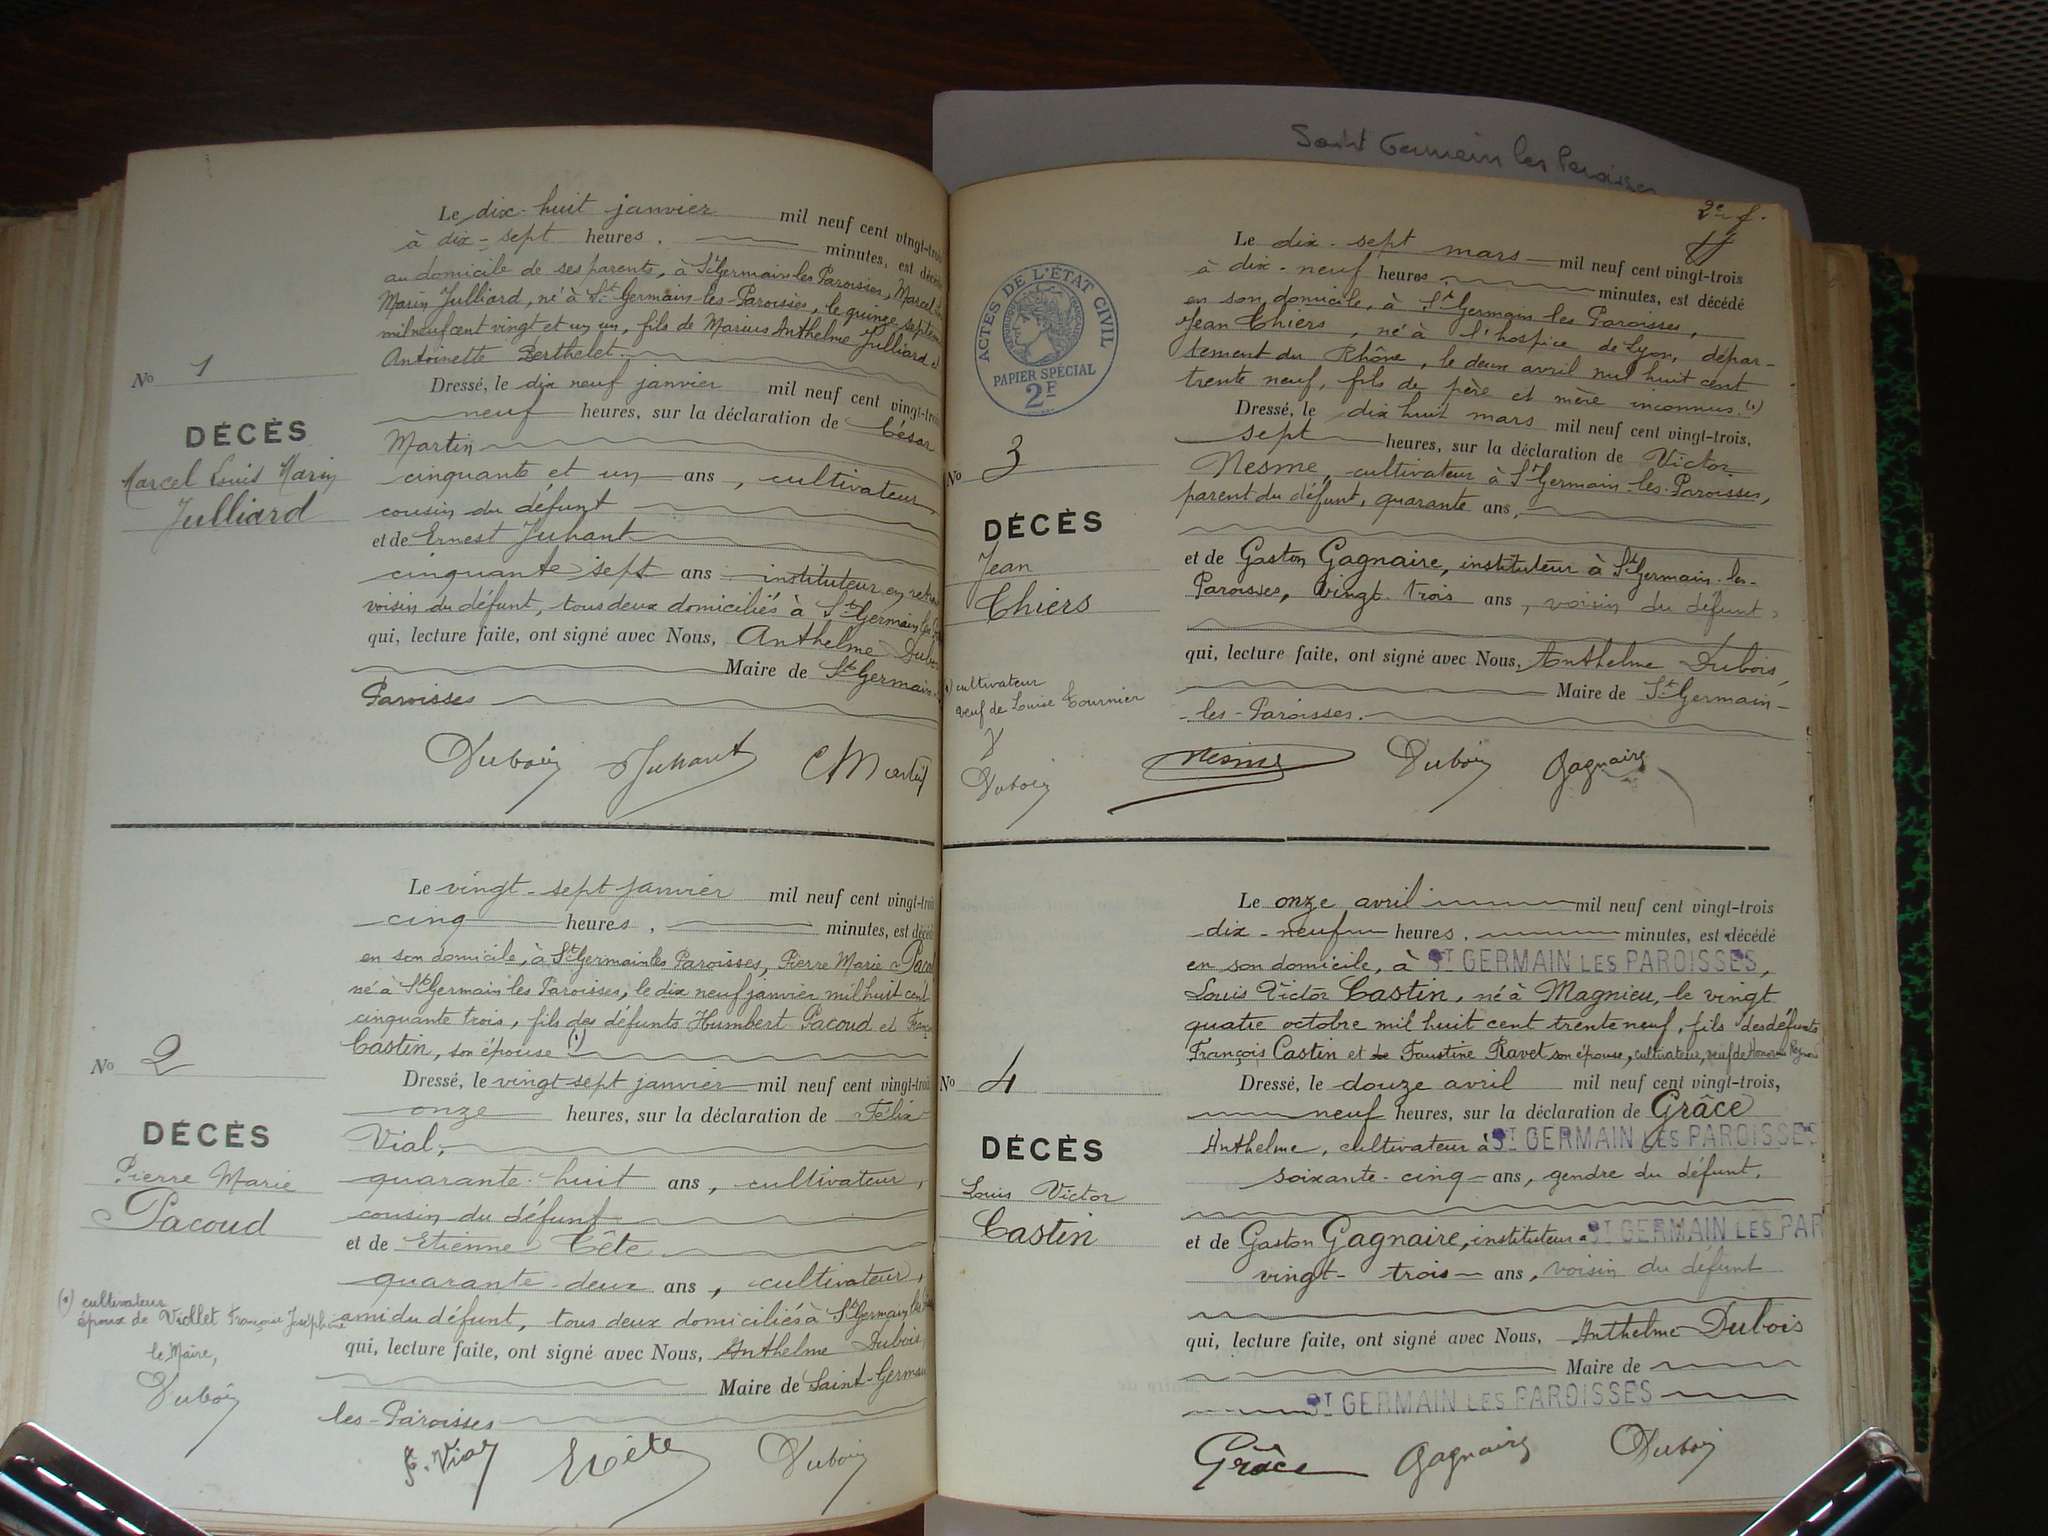 Saint Germain les Paroisses
1
Le dix-huit janvier mil neuf cent vingt-trois
à dix-sept heures, minutes, est décédé
au domicile de ses parents, à St Germain les Paroisses, Marcel
Marin Julliard, né à St Germain-les-Paroisses, le quinze septem
mil neuf cent vingt et un un, fils de Marius Anthelme Julliard et
Antoinette Berthelet.
No 1
DÉCÈS
Marcel Louis Marin
Julliard
Dressé, le dix neuf janvier mil neuf cent vingt-trois
neuf heures, sur la déclaration de César
Martin
cinquante et un ans, cultivateur,
cousin du défunt
et de Ernest Juhant
cinquante sept ans instituteur en retrai
voisin du défunt, tous deux domiciliés à St Germain les
qui, lecture faite, ont signé avec Nous, Anthelme Dubois
Maire de St Germain
Paroisses
Dubois Juhant C Martin
Le vingt-sept janvier mil neuf cent vingt-trois
cinq heures, minutes, est décédé
en son domicile, à St Germain les Paroisses, Pierre Marie Pacoud
né à St Germain les Paroisses, le dix neuf janvier mil huit cent
cinquante trois, fils des défunts Humbert Pacoud et Franç
Castin, son épouse (1)
No 2
DÉCÈS
Pierre Marie
Pacoud
Dressé, le vingt sept janvier mil neuf cent vingt-trois
onze heures, sur la déclaration de Félix
Vial,
quarante-huit ans, cultivateur,
cousin du défunt
et de Etienne Tête
quarante-deux ans, cultivateur,
ami du défunt, tous deux domiciliés à St Germain les
qui, lecture faite, ont signé avec Nous, Anthelme Dubois,
Maire de Saint-Germain
les-Paroisses
(1) cultivateur
époux de Viollet Françoise Joséphine
le Maire,
Dubois
F. Vial E Tête Dubois
2e f.
ACTES DE L'ÉTAT CIVIL
PAPIER SPÉCIAL
2F
Le dix-sept mars mil neuf cent vingt-trois
à dix-neuf heures, minutes, est décédé
en son domicile, à St Germain les Paroisses,
Jean Chiers, né à l'hospice de Lyon, dépar-
tement du Rhône, le deux avril mil huit cent
trente neuf, fils de père et mère inconnus. (1)
No 3
DÉCÈS
Jean
Chiers
Dressé, le dix huit mars mil neuf cent vingt-trois,
sept heures, sur la déclaration de Victor
Nesme, cultivateur à St Germain-les-Paroisses,
parent du défunt, quarante ans,
et de Gaston Gagnaire, instituteur à St Germain-les-
Paroisses, vingt-trois ans, voisin du défunt,
qui, lecture faite, ont signé avec Nous, Anthelme Dubois,
Maire de St Germain-
les-Paroisses.
(1) cultivateur
veuf de Louise Tournier
Dubois
Nesme Dubois Gagnaire
Le onze avril mil neuf cent vingt-trois
dix-neuf heures, minutes, est décédé
en son domicile, à ST GERMAIN LES PAROISSES,
Louis Victor Castin, né à Magnieu, le vingt
quatre octobre mil huit cent trente neuf, fils des défunts
François Castin et de Faustine Ravet son épouse, cultivateur, veuf de
No 4
DÉCÈS
Louis Victor
Castin
Dressé, le douze avril mil neuf cent vingt-trois,
neuf heures, sur la déclaration de Grâce
Anthelme, cultivateur à ST GERMAIN LES PAROISSES
soixante-cinq ans, gendre du défunt.
et de Gaston Gagnaire, instituteur à ST GERMAIN LES PAR
vingt-trois ans, voisin du défunt
qui, lecture faite, ont signé avec Nous, Anthelme Dubois
Maire de
ST GERMAIN LES PAROISSES
Grâce Gagnaire Dubois